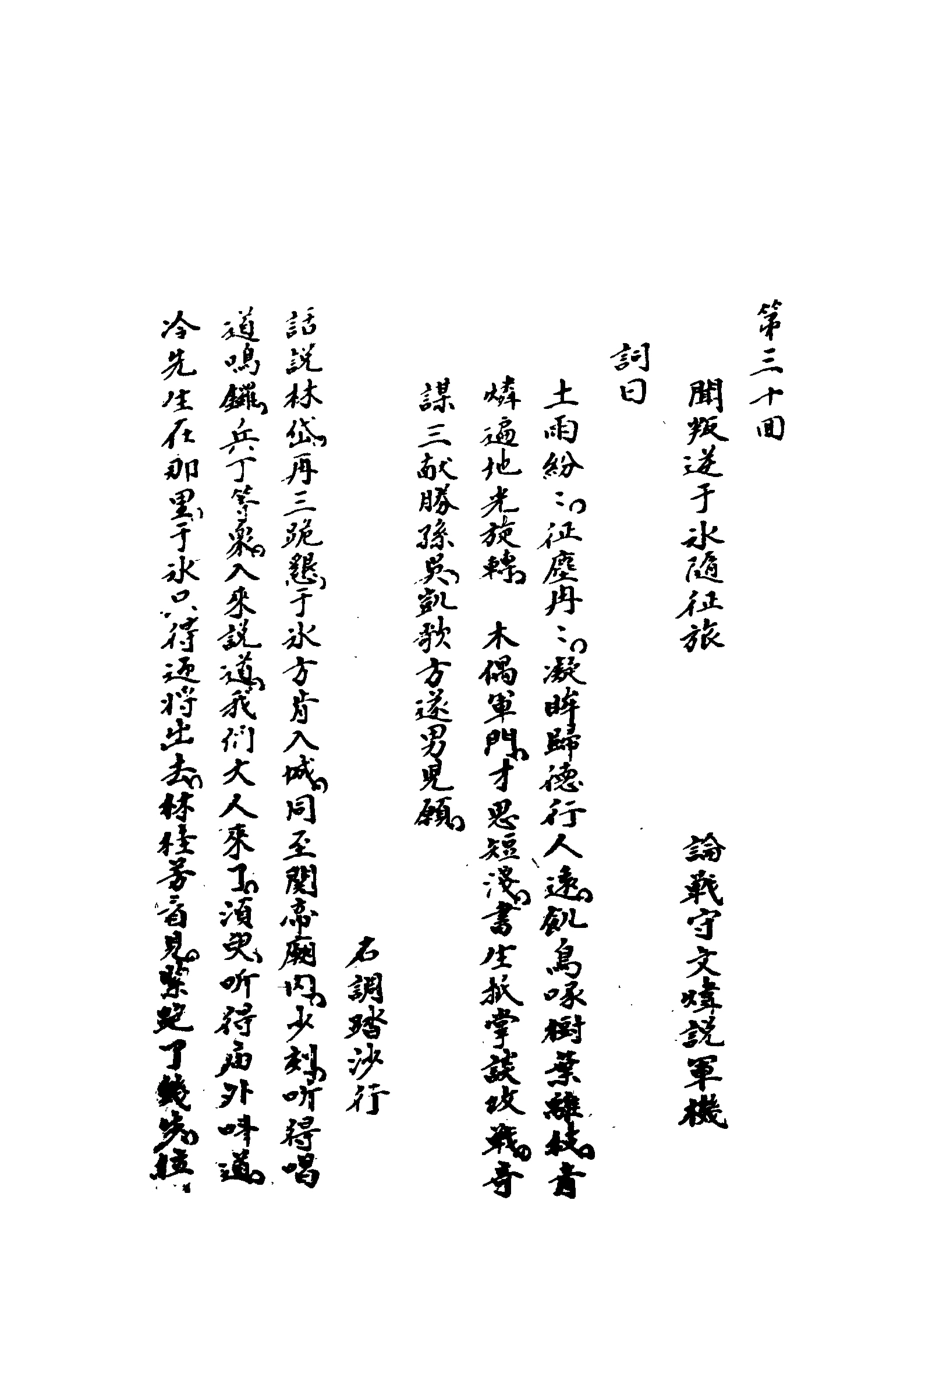 第三十回
聞叛逆于氷隨征旅　論戰守文煒説軍機
詞曰
土雨紛〻征塵冉〻凝眸歸德行人遠飢鳥啄樹葉離枝青
燐遍地光旋轉　木偶軍門才思短淺書生抵掌談攻戰奇
謀三献勝孫吳凱歌方遂男兒願
右調踏沙行
話説林岱再三跪懇于氷方肯入城同至関帝廟内少刻听得唱
道鳴鑼兵丁等衆入來説道我們大人來了須臾听得廟外呌道
冷先生在那里于氷只得迎將出去林桂芳看見緊跑了幾步拉